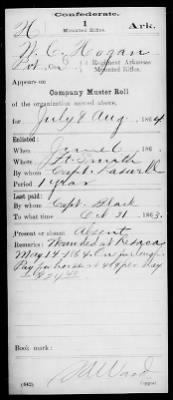 Confederate.
H 1 Ark.
Mounted Rifles.
W. C. Hogan
Pvt., Co. H, 1 Regiment Arkansas
Mounted Rifles.
Appears on
Company Muster Roll
of the organization named above,
for July & Aug, 1864.
Enlisted:
When June 6, 186
Where Ft. Smith
By whom Capt.
Period 1 year
Last paid:
By whom Capt. Black
To what time Oct 31, 1863.
Present or absent Absent
Remarks: Wounded at Resaca
May 14-1864. On furlough.
Pay for horse at 40¢ per day
Book mark:
(642) Copyist.